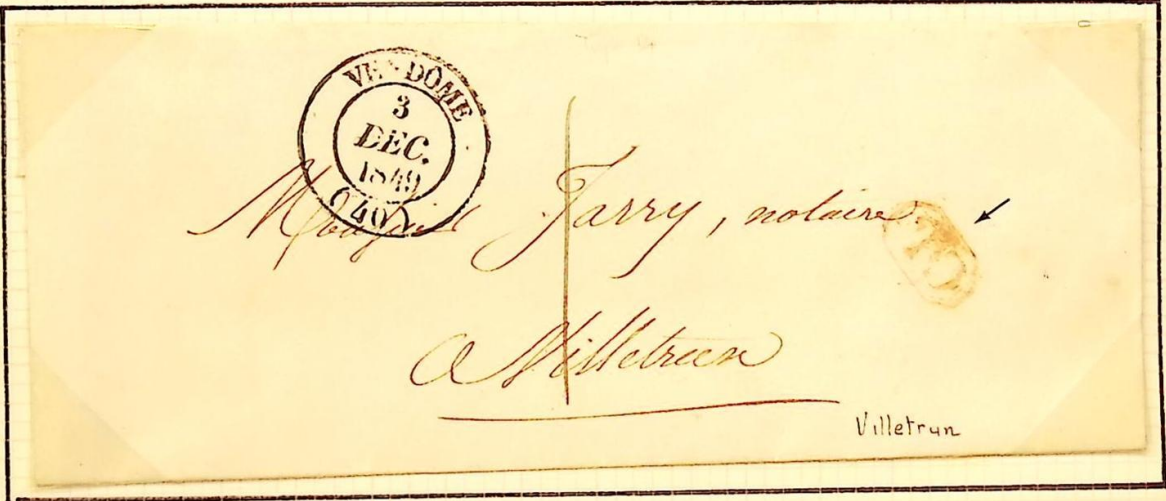 VENDÔME
3
DEC.
1849
(40)
Jarry, notaire
a Villetrun
Villetrun